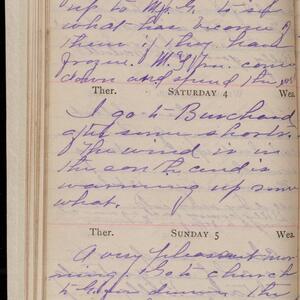 up to Mr G. to see
what has become of
them if they have
frozen. Mc & Jim come
down and spend the
Ther. SATURDAY 4 Wea.
I go to Burchard
after some shorts.
The wind is in
the south and is
warming up some
what.
Ther. SUNDAY 5 Wea.
A very pleasant mor
ning. Go to church
to dinner. The